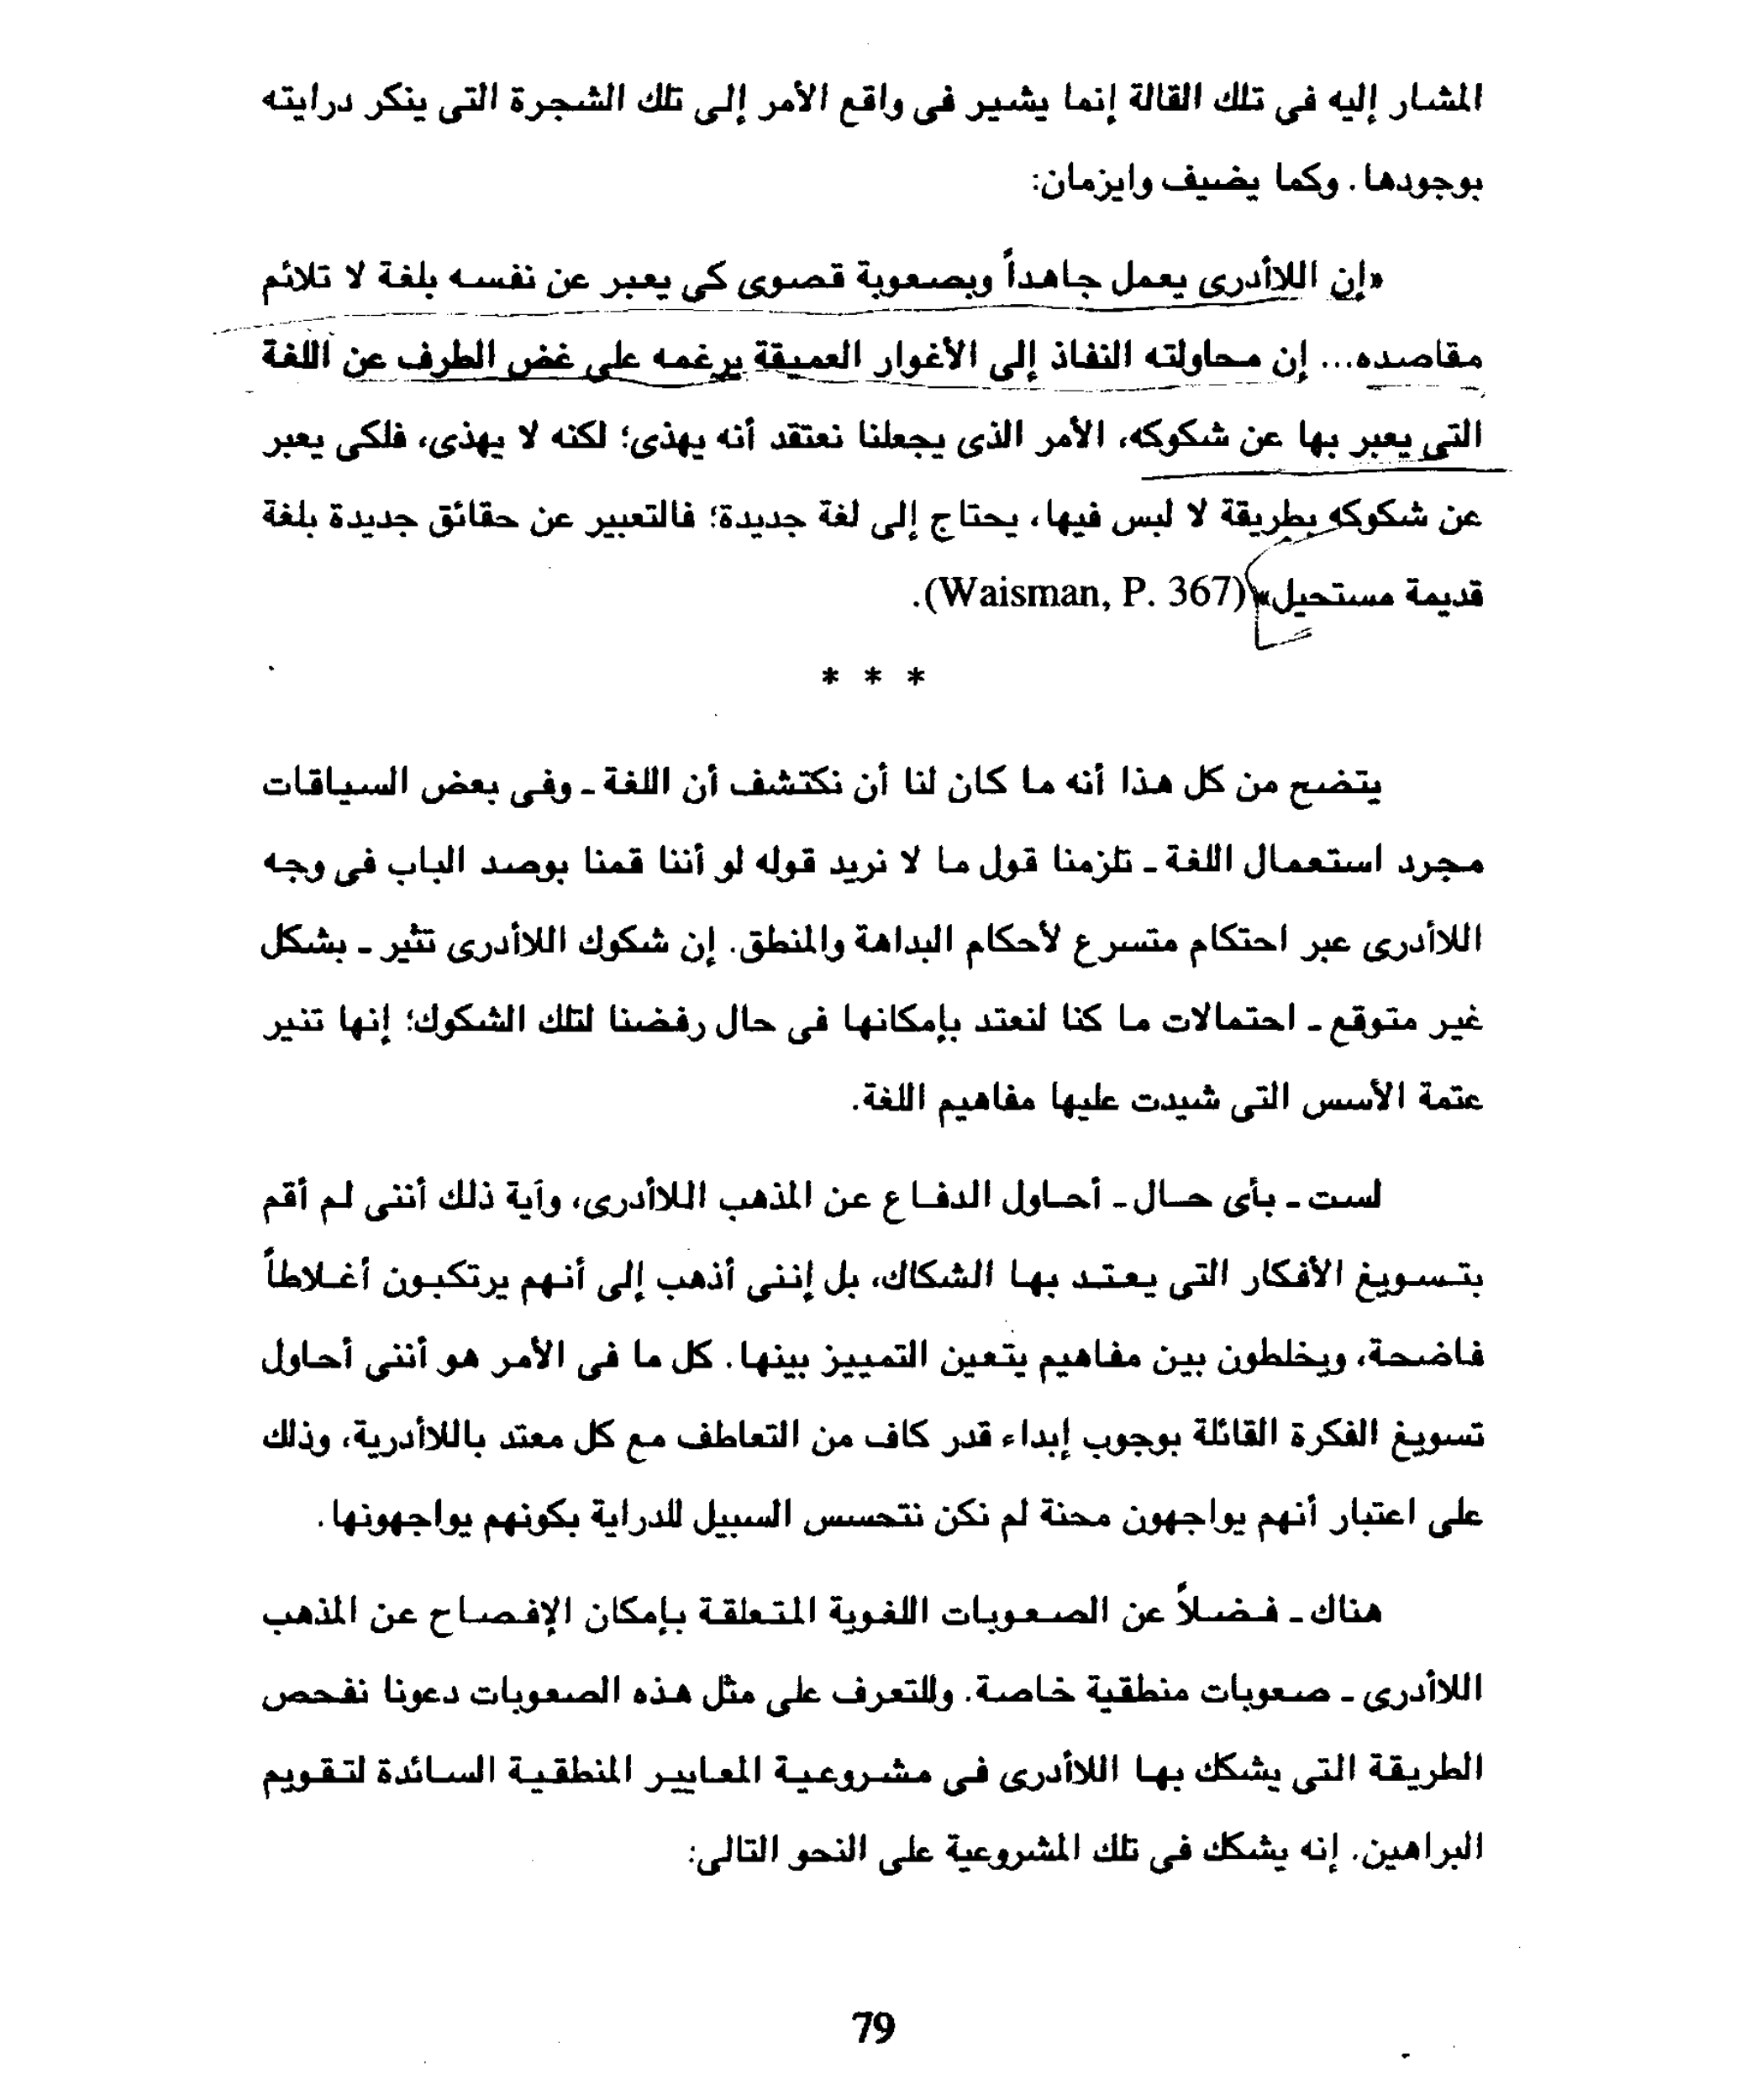 المشار إليه فى تلك القالة إنما يشير فى واقع الأمر إلى تلك الشجرة التى ينكر درايته
بوجودها. وكما يضيف وايزمان:
«إن اللاأدرى يعمل جاهداً وبصعوبة قصوى كى يعبر عن نفسه بلغة لا تلائم
مقاصده... إن محاولته النفاذ إلى الأغوار العميقة يرغمه على غض الطرف عن اللغة
التى يعبر بها عن شكوكه، الأمر الذى يجعلنا نعتقد أنه يهذى؛ لكنه لا يهذى، فلكى يعبر
عن شكوكه بطريقة لا لبس فيها، يحتاج إلى لغة جديدة؛ فالتعبير عن حقائق جديدة بلغة
قديمة مستحيل» (Waisman, P. 367).
* * *
يتضح من كل هذا أنه ما كان لنا أن نكتشف أن اللغة ـ وفى بعض السياقات
مجرد استعمال اللغة ـ تلزمنا قول ما لا نريد قوله لو أننا قمنا بوصد الباب فى وجه
اللاأدرى عبر احتكام متسرع لأحكام البداهة والمنطق. إن شكوك اللاأدرى تثير ـ بشكل
غير متوقع ـ احتمالات ما كنا لنعتد بإمكانها فى حال رفضنا لتلك الشكوك؛ إنها تنير
عتمة الأسس التى شيدت عليها مفاهيم اللغة.
لست ـ بأى حال ـ أحاول الدفاع عن المذهب اللاأدرى، وآية ذلك أننى لم أقم
بتسويغ الأفكار التى يعتد بها الشكاك، بل إننى أذهب إلى أنهم يرتكبون أغلاطاً
فاضحة، ويخلطون بين مفاهيم يتعين التمييز بينها. كل ما فى الأمر هو أننى أحاول
تسويغ الفكرة القائلة بوجوب إبداء قدر كاف من التعاطف مع كل معتد باللاأدرية، وذلك
على اعتبار أنهم يواجهون محنة لم نكن نتحسس السبيل للدراية بكونهم يواجهونها.
هناك ـ فضلاً عن الصعوبات اللغوية المتعلقة بإمكان الإفصاح عن المذهب
اللاأدرى ـ صعوبات منطقية خاصة. وللتعرف على مثل هذه الصعوبات دعونا نفحص
الطريقة التى يشكك بها اللاأدرى فى مشروعية المعايير المنطقية السائدة لتقويم
البراهين. إنه يشكك فى تلك المشروعية على النحو التالى:
79